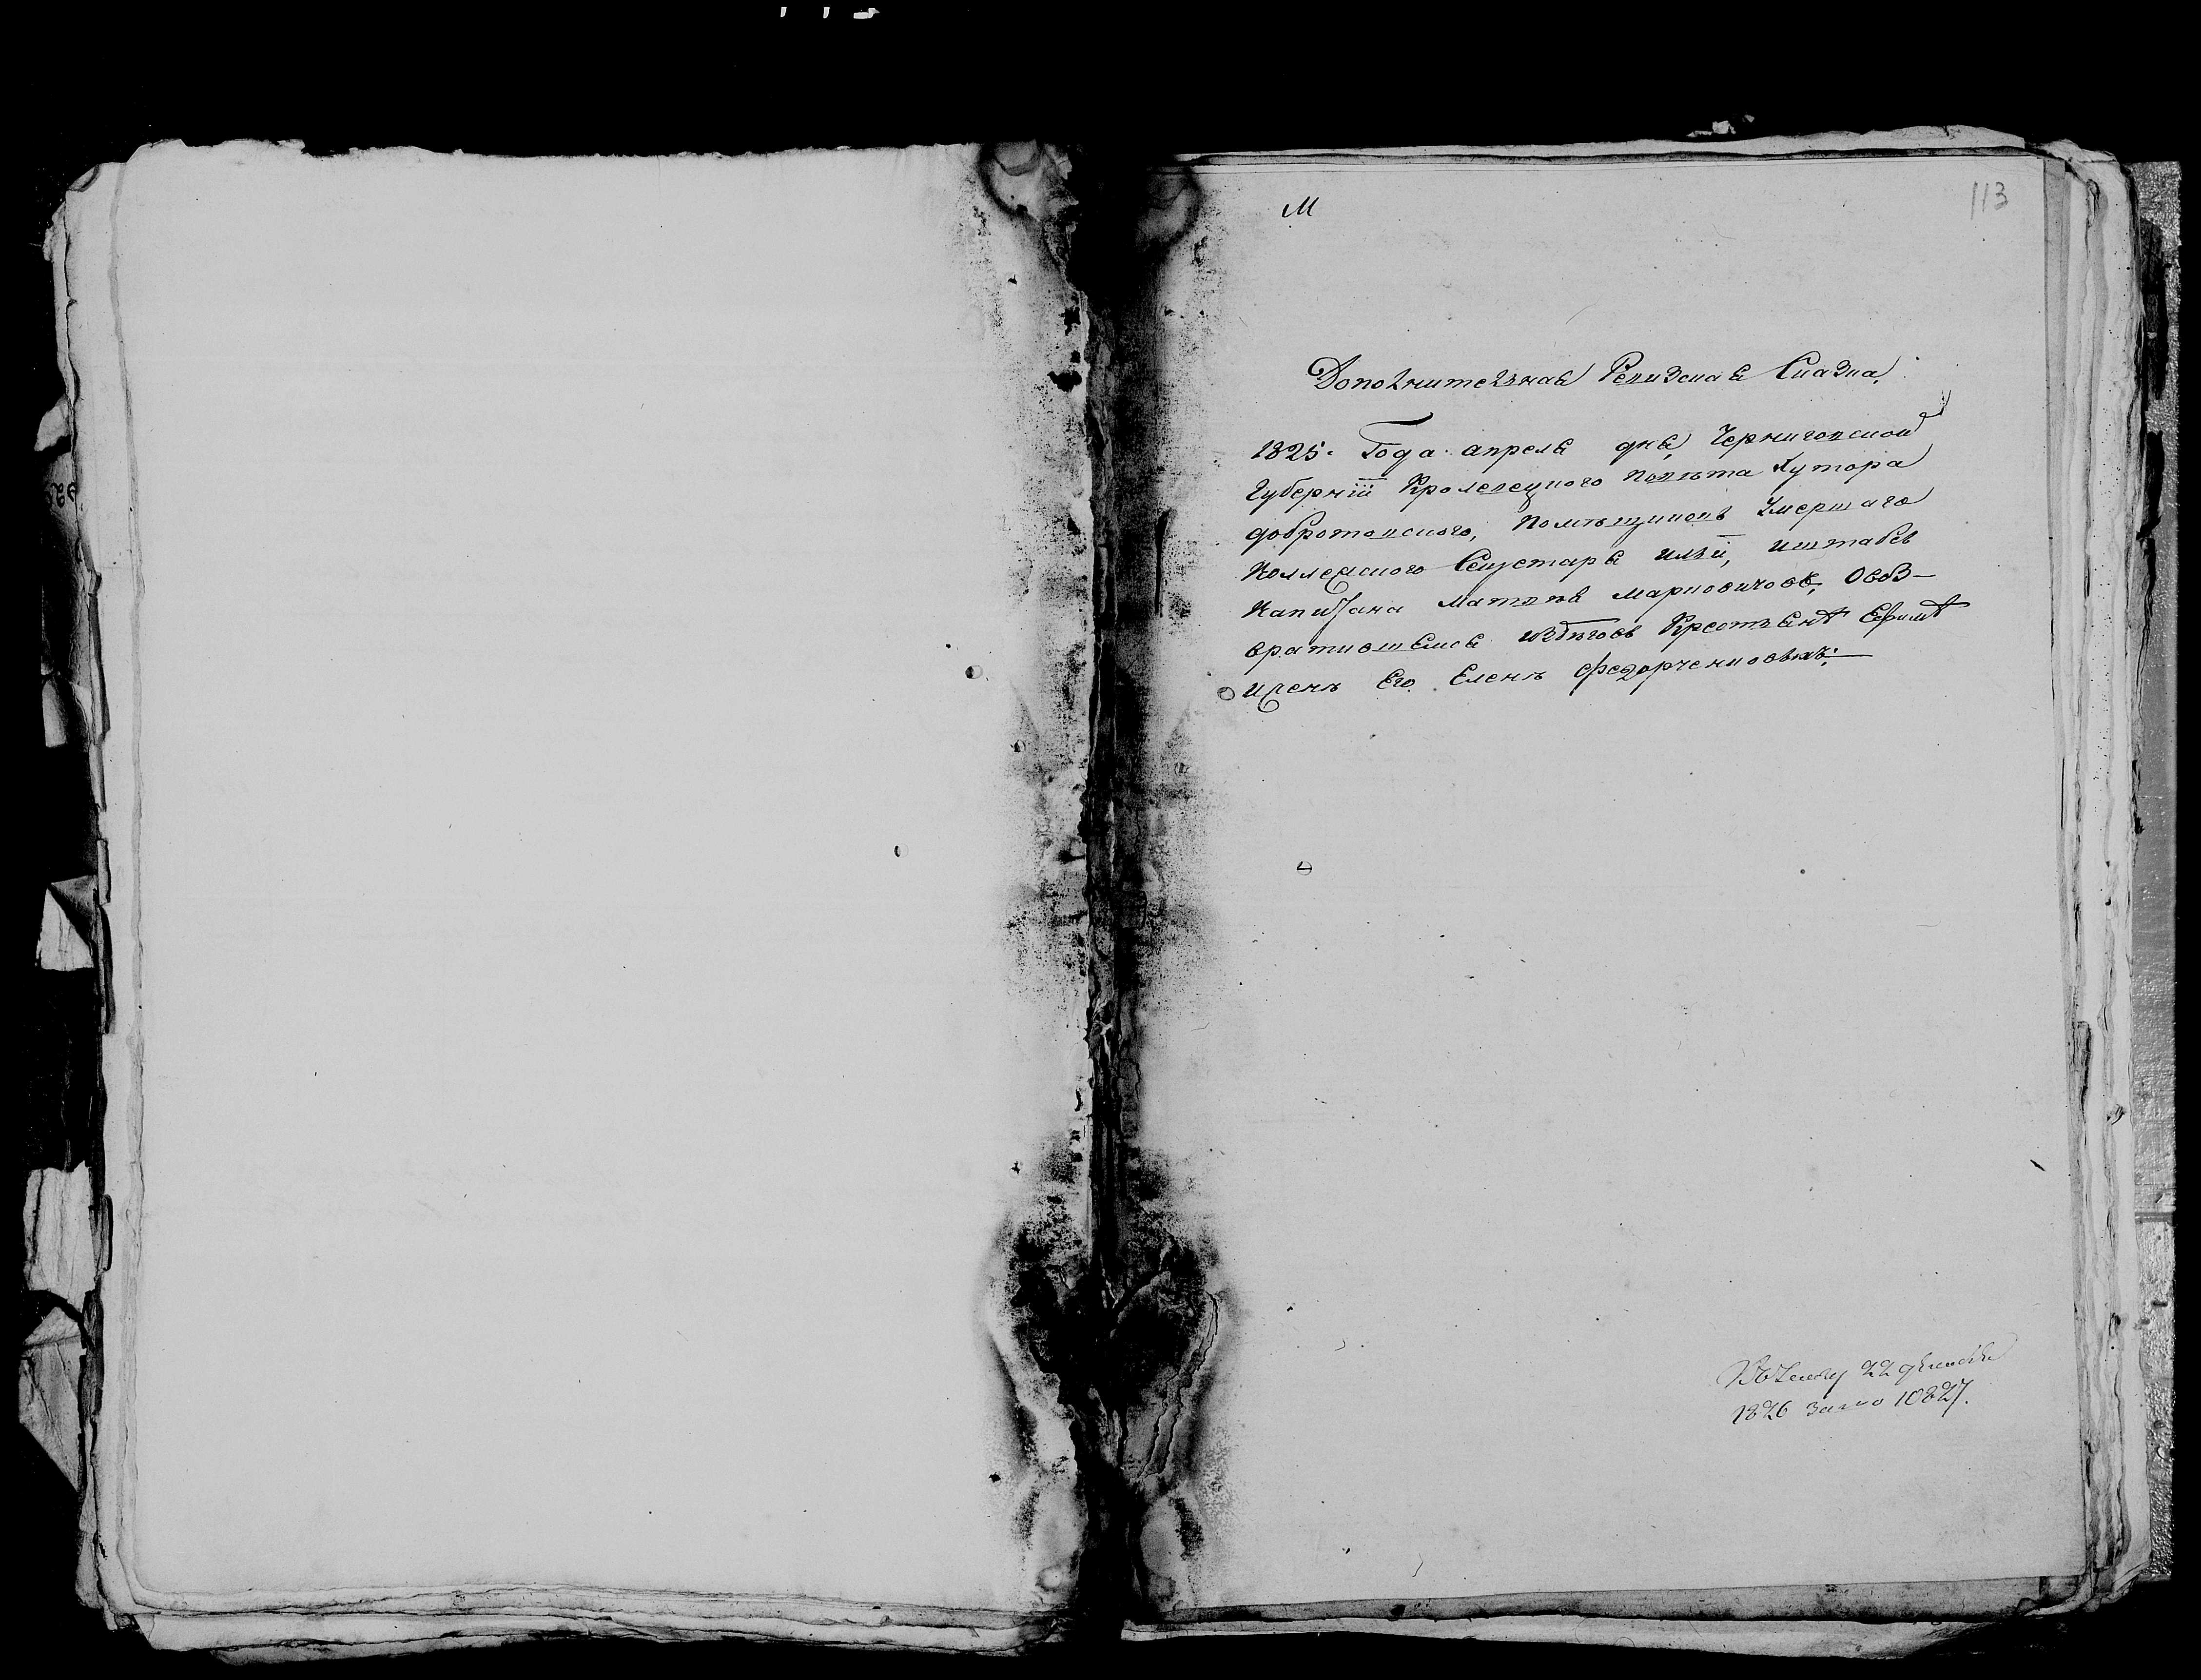 М
113
Дополнительная Ревизская Сказка,
1825. Года апреля дня, Черниговской
Губерніи Кролевецкого повѣта Хутора
добротовского, помѣщиковъ Умершаго
Коллежского Секретаря ильи, иштабсъ
Капитана Матвѣя Марковичовъ, Овоз-
вратившемся избѣговъ Крестьянѣ Ефимѣ
ижене Его Елене Федорченковыхъ;
22 декабря
1826 зано 10827.